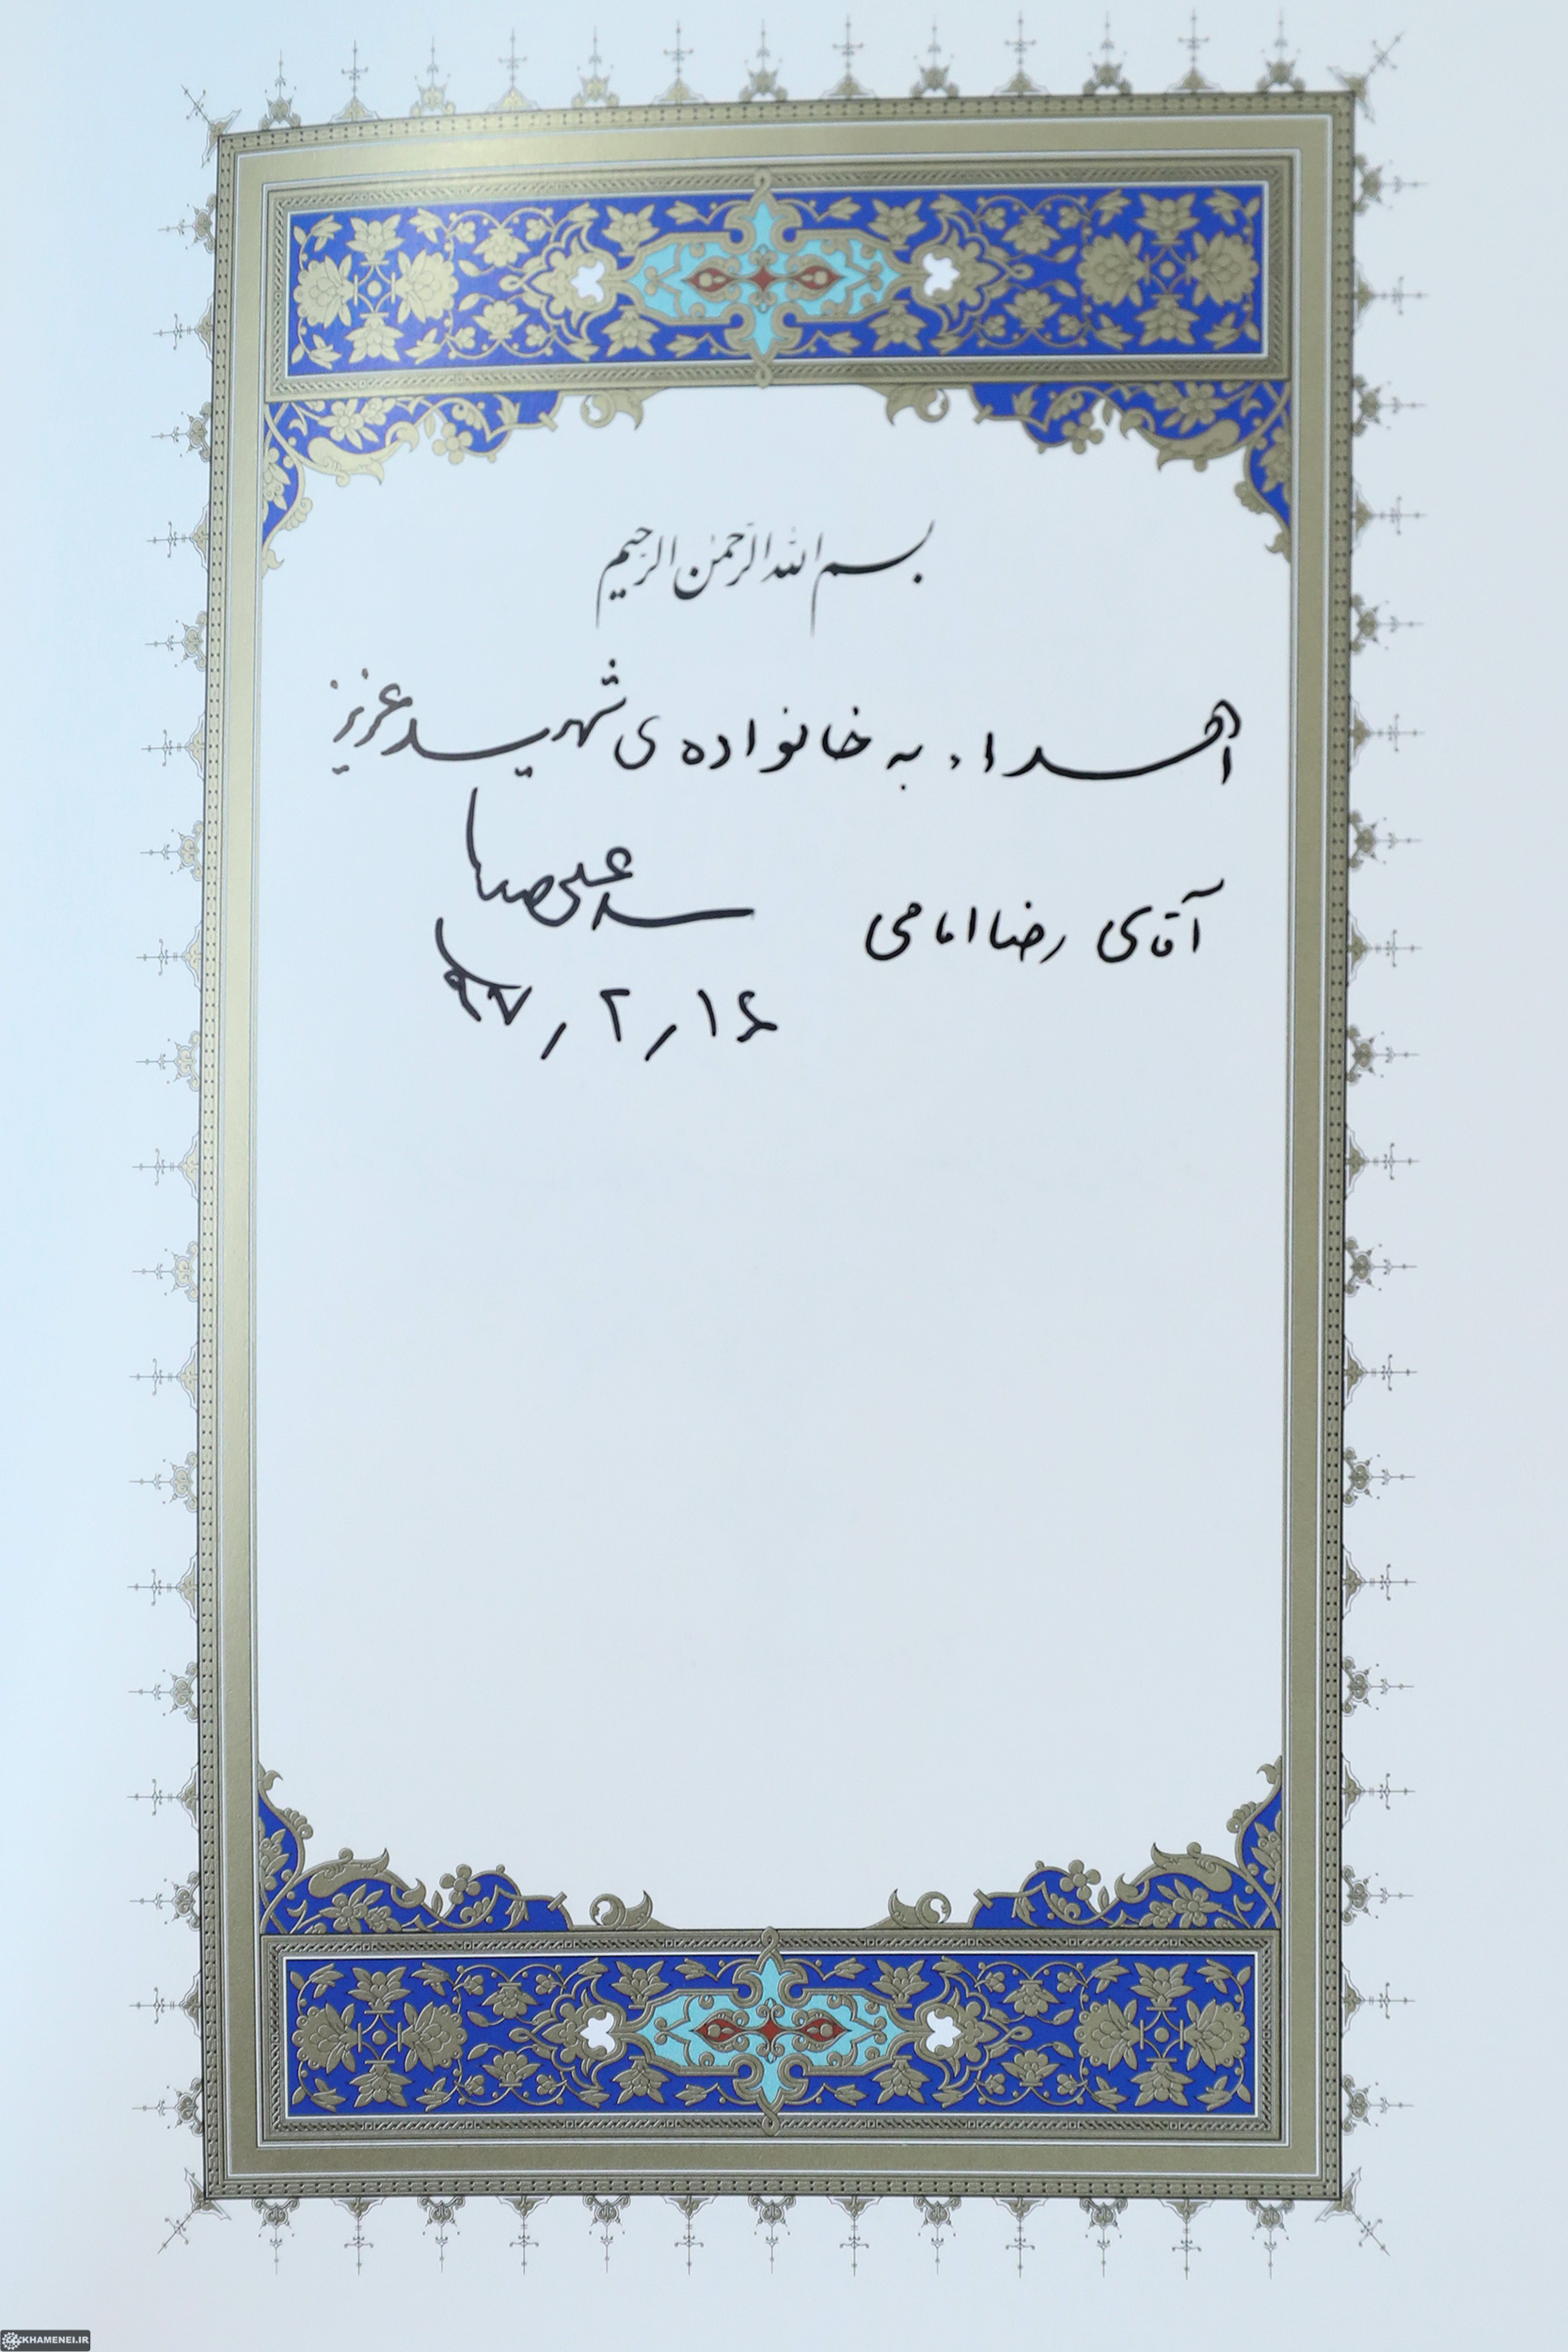 بسم الله الرحمن الرحیم
اهداء به خانواده‌ی شهید عزیز
آقای رضا امامی
سید علی
۹۷/۲/۱۶
KHAMENEI.IR